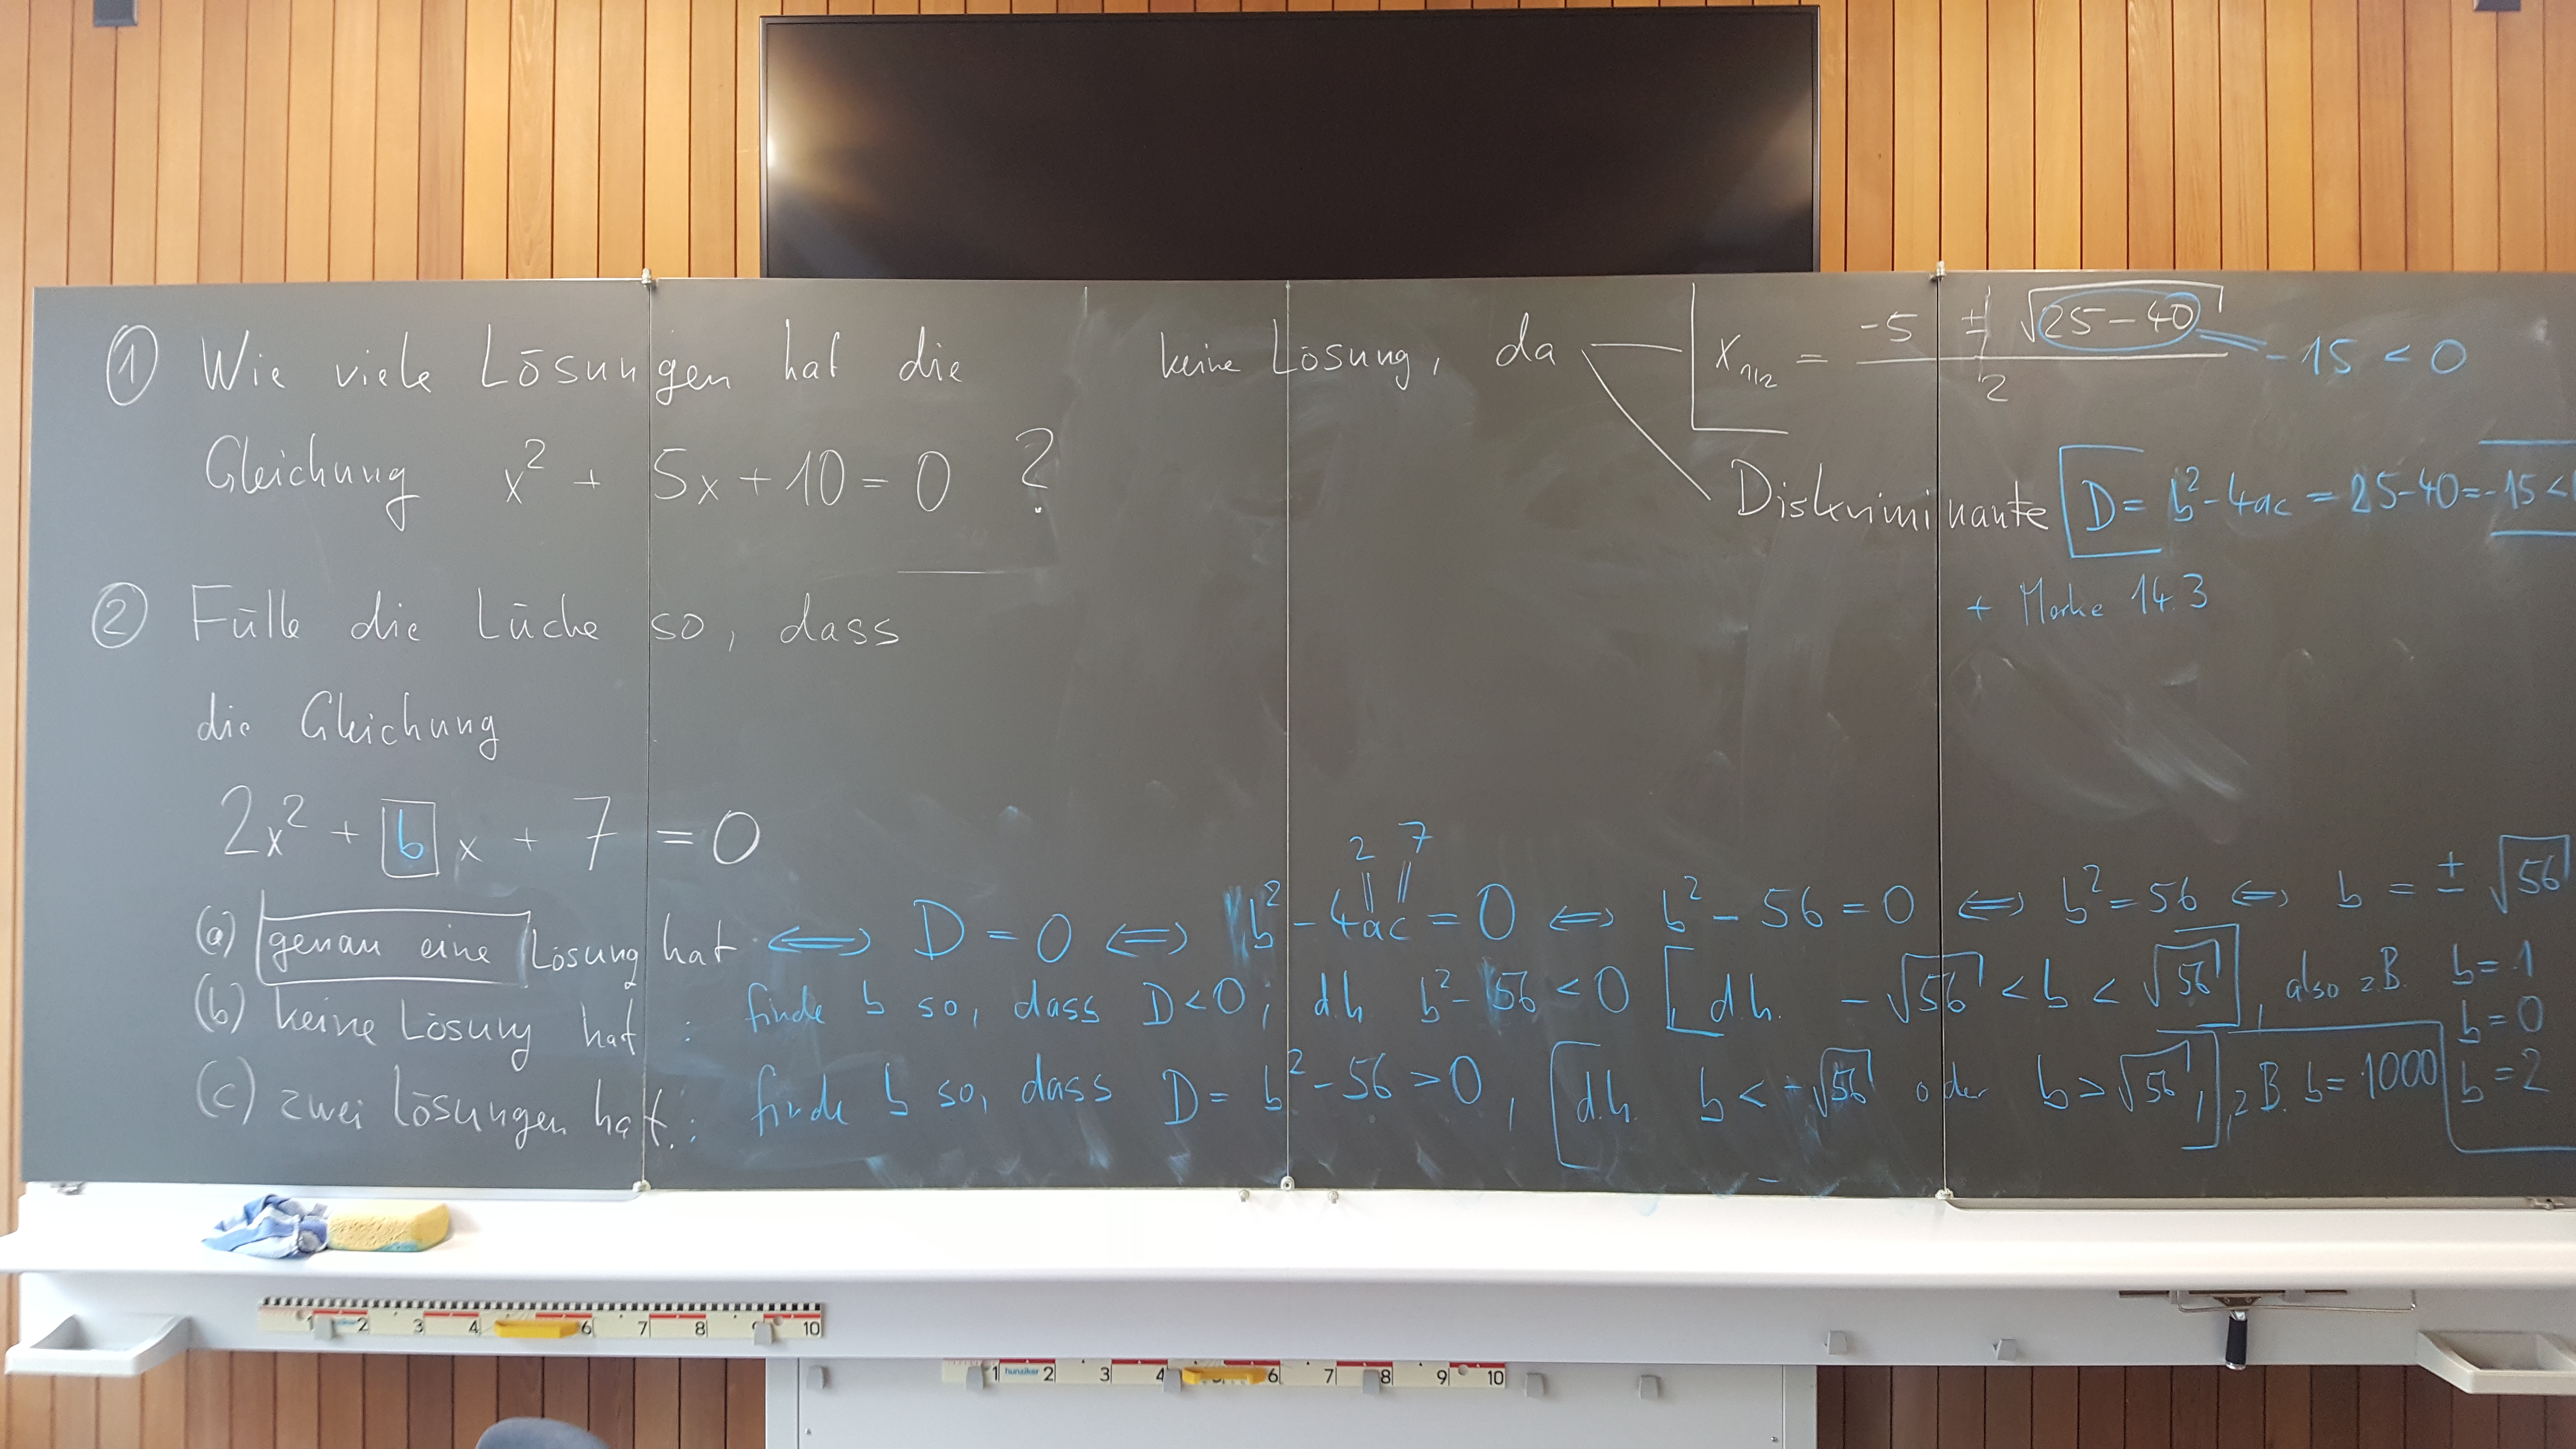 ① Wie viele Lösungen hat die
Gleichung x² + 5x + 10 = 0 ?
keine Lösung, da
x₁,₂ = (-5 ± √(25-40)) / 2
-15 < 0
Diskriminante D = b²-4ac = 25-40 = -15 <
+ Merke 14.3
② Fülle die Lücke so, dass
die Gleichung
2x² + b x + 7 = 0
2 7
(a) genau eine Lösung hat ⟺ D = 0 ⟺ b² - 4ac = 0 ⟺ b² - 56 = 0 ⟺ b² = 56 ⟺ b = ± √56
(b) keine Lösung hat : finde b so, dass D < 0, d.h. b² - 56 < 0 [d.h. -√56 < b < √56], also z.B. b = 1
b = 0
b = 2
(c) zwei Lösungen hat. : finde b so, dass D = b² - 56 > 0, [d.h. b < -√56 oder b > √56,], z.B. b = 1000
1 hunziker 2 3 4 6 7 8 9 10
1 hunziker 2 3 4 5 6 7 8 9 10